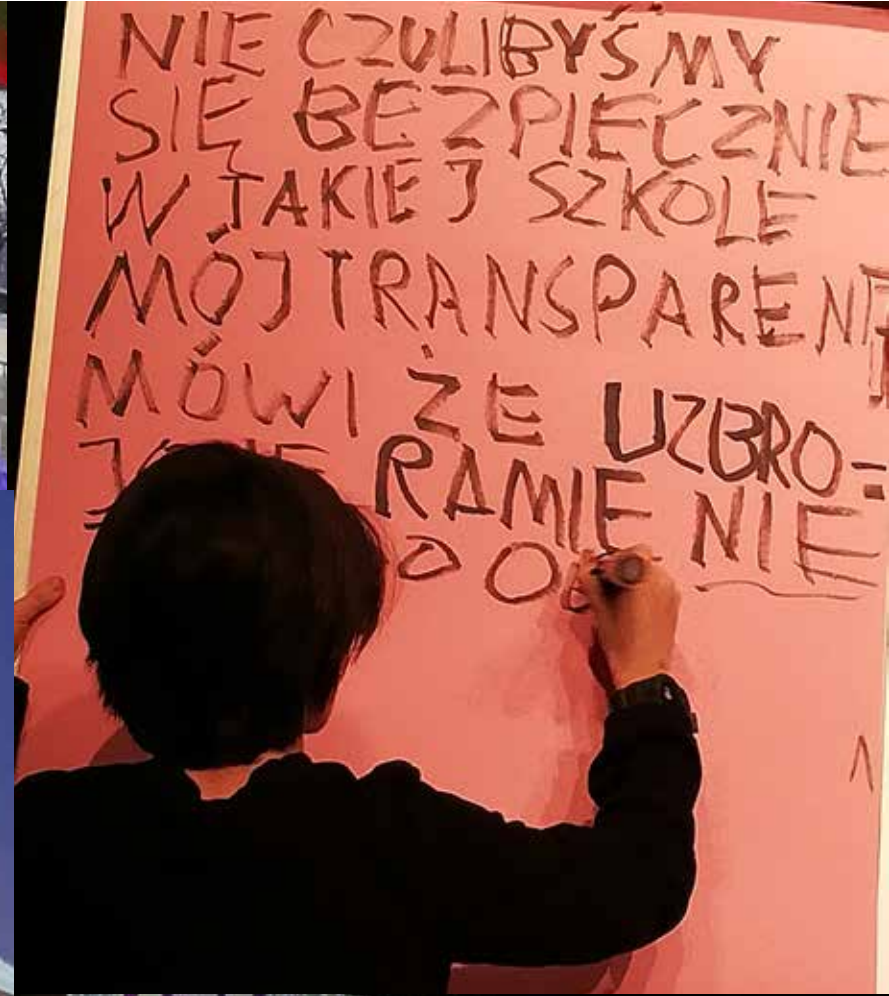 NIE CZULIBYŚMY
SIĘ BEZPIECZNIE
W TAKIEJ SZKOLE
MÓJ TRANSPARENT
MÓWI ŻE UZBRO=
RAMIE NIE